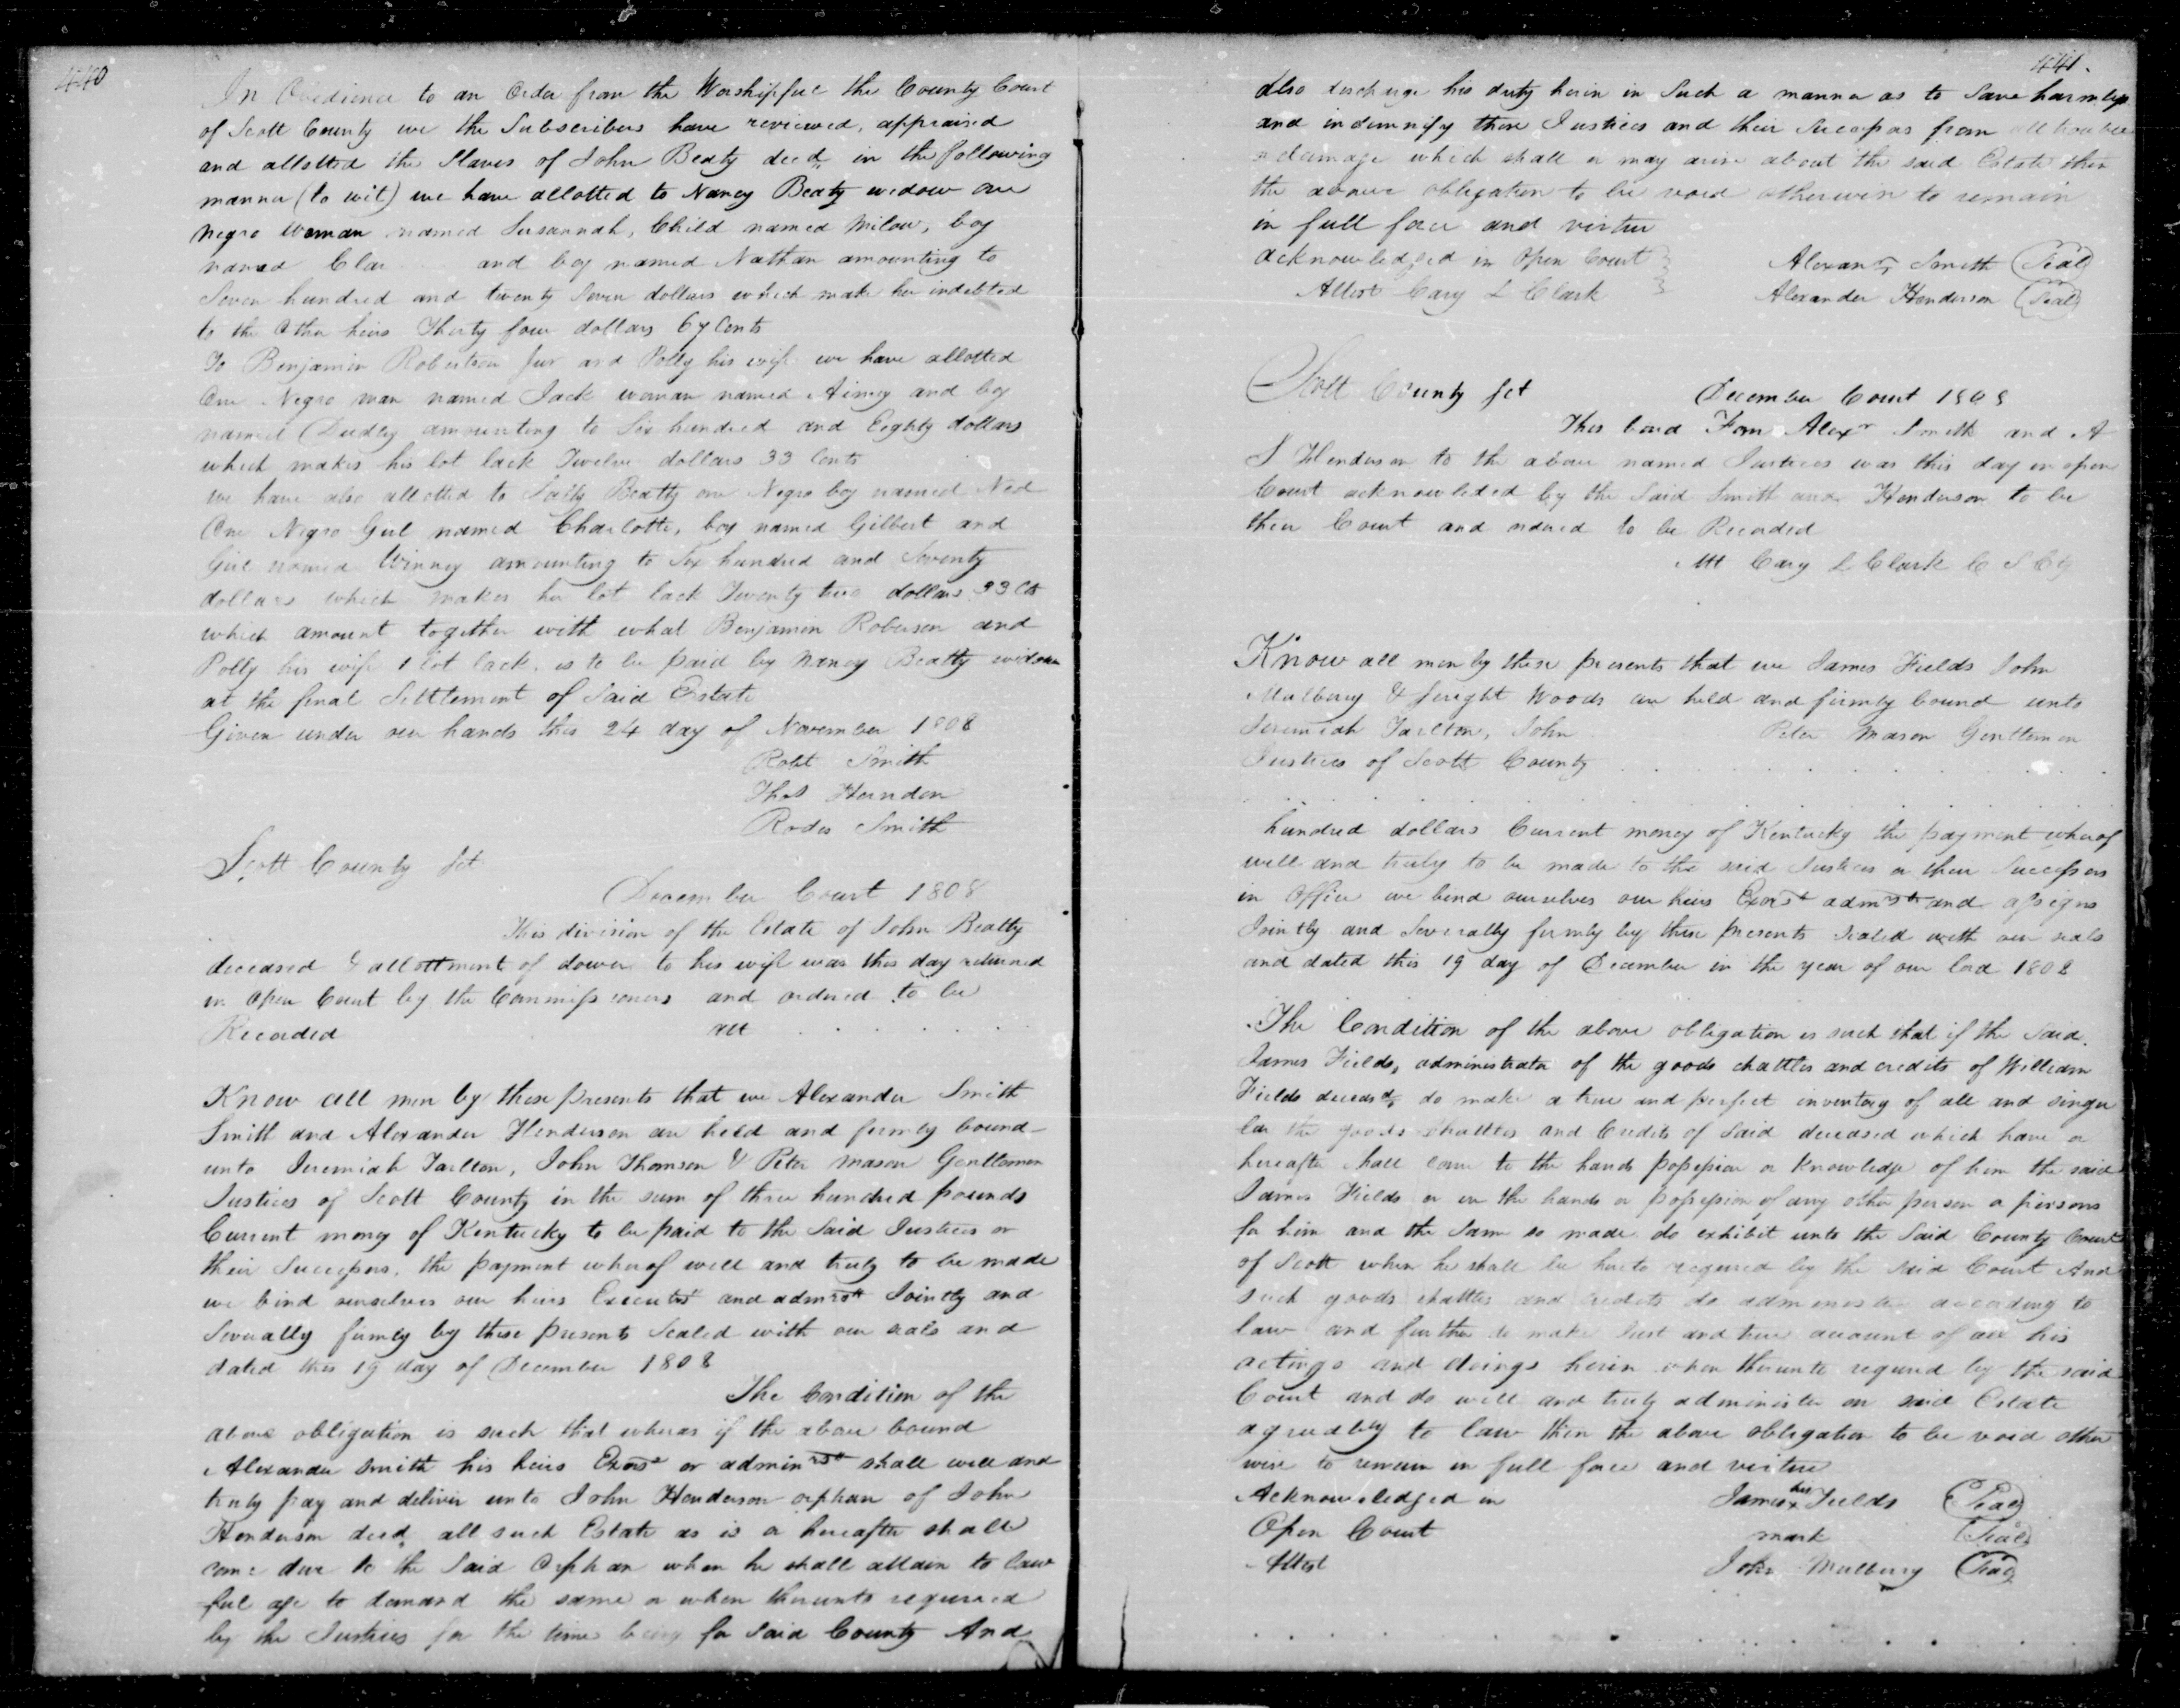 440
In Obedience to an Order from the Worshipfull the County Court
of Scott County we the Subscribers have reviewed, appraised
and allotted the Slaves of John Beaty decd, in the following
manner (to wit) we have allotted to Nancy Beaty widow one
Negro Woman named Susannah, Child named Milow, boy
named Clar and boy named Nathan amounting to
Seven hundred and twenty Seven dollars which make her indebted
to the Other heirs Thirty four dollars 67 Cents
To Benjamin Robertson Jur and Polly his wife we have allotted
One Negro man named Jack woman named Aimey and boy
named Dudley amounting to Six hundred and Eighty dollars
which makes his lot lack Twelve dollars 33 Cents
we have also allotted to Sally Beatty one Negro boy named Ned
One Negro Girl named Charlotte, boy named Gilbert and
Girl named Winney amounting to Six hundred and Seventy
dollars which makes her lot lack Twenty two dollars 33 Cts
which amount together with what Benjamin Roberson and
Polly his wife lot lack, is to be paid by Nancy Beatty widow
at the final Setttlement of Said Estate
Given under our hands this 24 day of November 1808
Robt Smith
Thos Herndon
Rodes Smith
Scott County Sct
December Court 1808
This division of the Estate of John Beatty
deceased & allottment of dower to his wife was this day returned
in Open Court by the Commissioners and ordered to be
Recorded att
Know all men by these presents that we Alexander Smith
Smith and Alexander Henderson are held and firmly bound
unto Jeremiah Tarlton, John Thomson & Peter Mason Gentlemen
Justices of Scott County in the sum of three hundred pounds
Current money of Kentucky to be paid to the Said Justices or
their Successors, the payment wherof well and truly to be made
we bind ourselves our heirs Executrs and admrs Jointly and
Severally firmly by these presents Sealed with our seals and
dated this 19 day of December 1808
The Condition of the
above obligation is such that wheras if the above bound
Alexander Smith his heirs Exors or adminrs shall well and
truly pay and deliver unto John Henderson orphan of John
Henderson decd, all such Estate as is or hereafter shall
come due to the Said Orphan when he shall attain to law
ful age to demand the same or when thereunto required
by the Justices for the time being for Said County And
441.
also discharge his duty herin in Such a manner as to Save harmless
and indemnify these Justices and their Successors from all trouble
or damage which shall or may arise about the said Estate then
the above obligation to be void otherwise to remain
in full force and virtue
acknowledged in Open Court Alexanr Smith Seal
Attest Cary L Clark Alexander Henderson Seal
Scott County Sct December Court 1808
This bond From Alexr Smith and A
S Henderson to the above named Justices was this day in open
Court acknowleded by the Said Smith and Henderson to be
their Court and ordered to be Recorded
Att Cary L Clark C S C
Know all men by these presents that we James Fields John
Mulberry & Woods are held and firmly bound unto
Jeremiah Tarlton, John Peter Mason Gentlemen
Justices of Scott County
hundred dollars Current money of Kentucky the payment wherof
well and truly to be made to the said Justices or their Successors
in Office we bind ourselves our heirs Exors admrs and assigns
Jointly and Severally firmly by these presents sealed with our seals
and dated this 19 day of December in the year of our lord 1808
The Condition of the above obligation is such that if the Said
James Fields, administrator of the goods chattles and credits of William
Fields deceasd, do make a true and perfect inventory of all and singu
lar the goods Chattles and Credits of Said deceased which have or
hereafter shall come to the hands possession or Knowledge of him the said
James Fields or in the hands or possession of any other person or persons
for him and the Same so made do exhibit unto the Said County Court
of Scott when he shall be hereto required by the Said Court And
such goods chattles and credits do administer according to
law and further to make Just and true account of all his
actings and doings herin when therunto required by the said
Court and do well and truly administer on said Estate
agreeably to law then the above obligation to be void other
wise to remain in full force and virtue
Acknowledged in James his x Fields Seal
Open Court mark Seal
Attest John Mulberry Seal